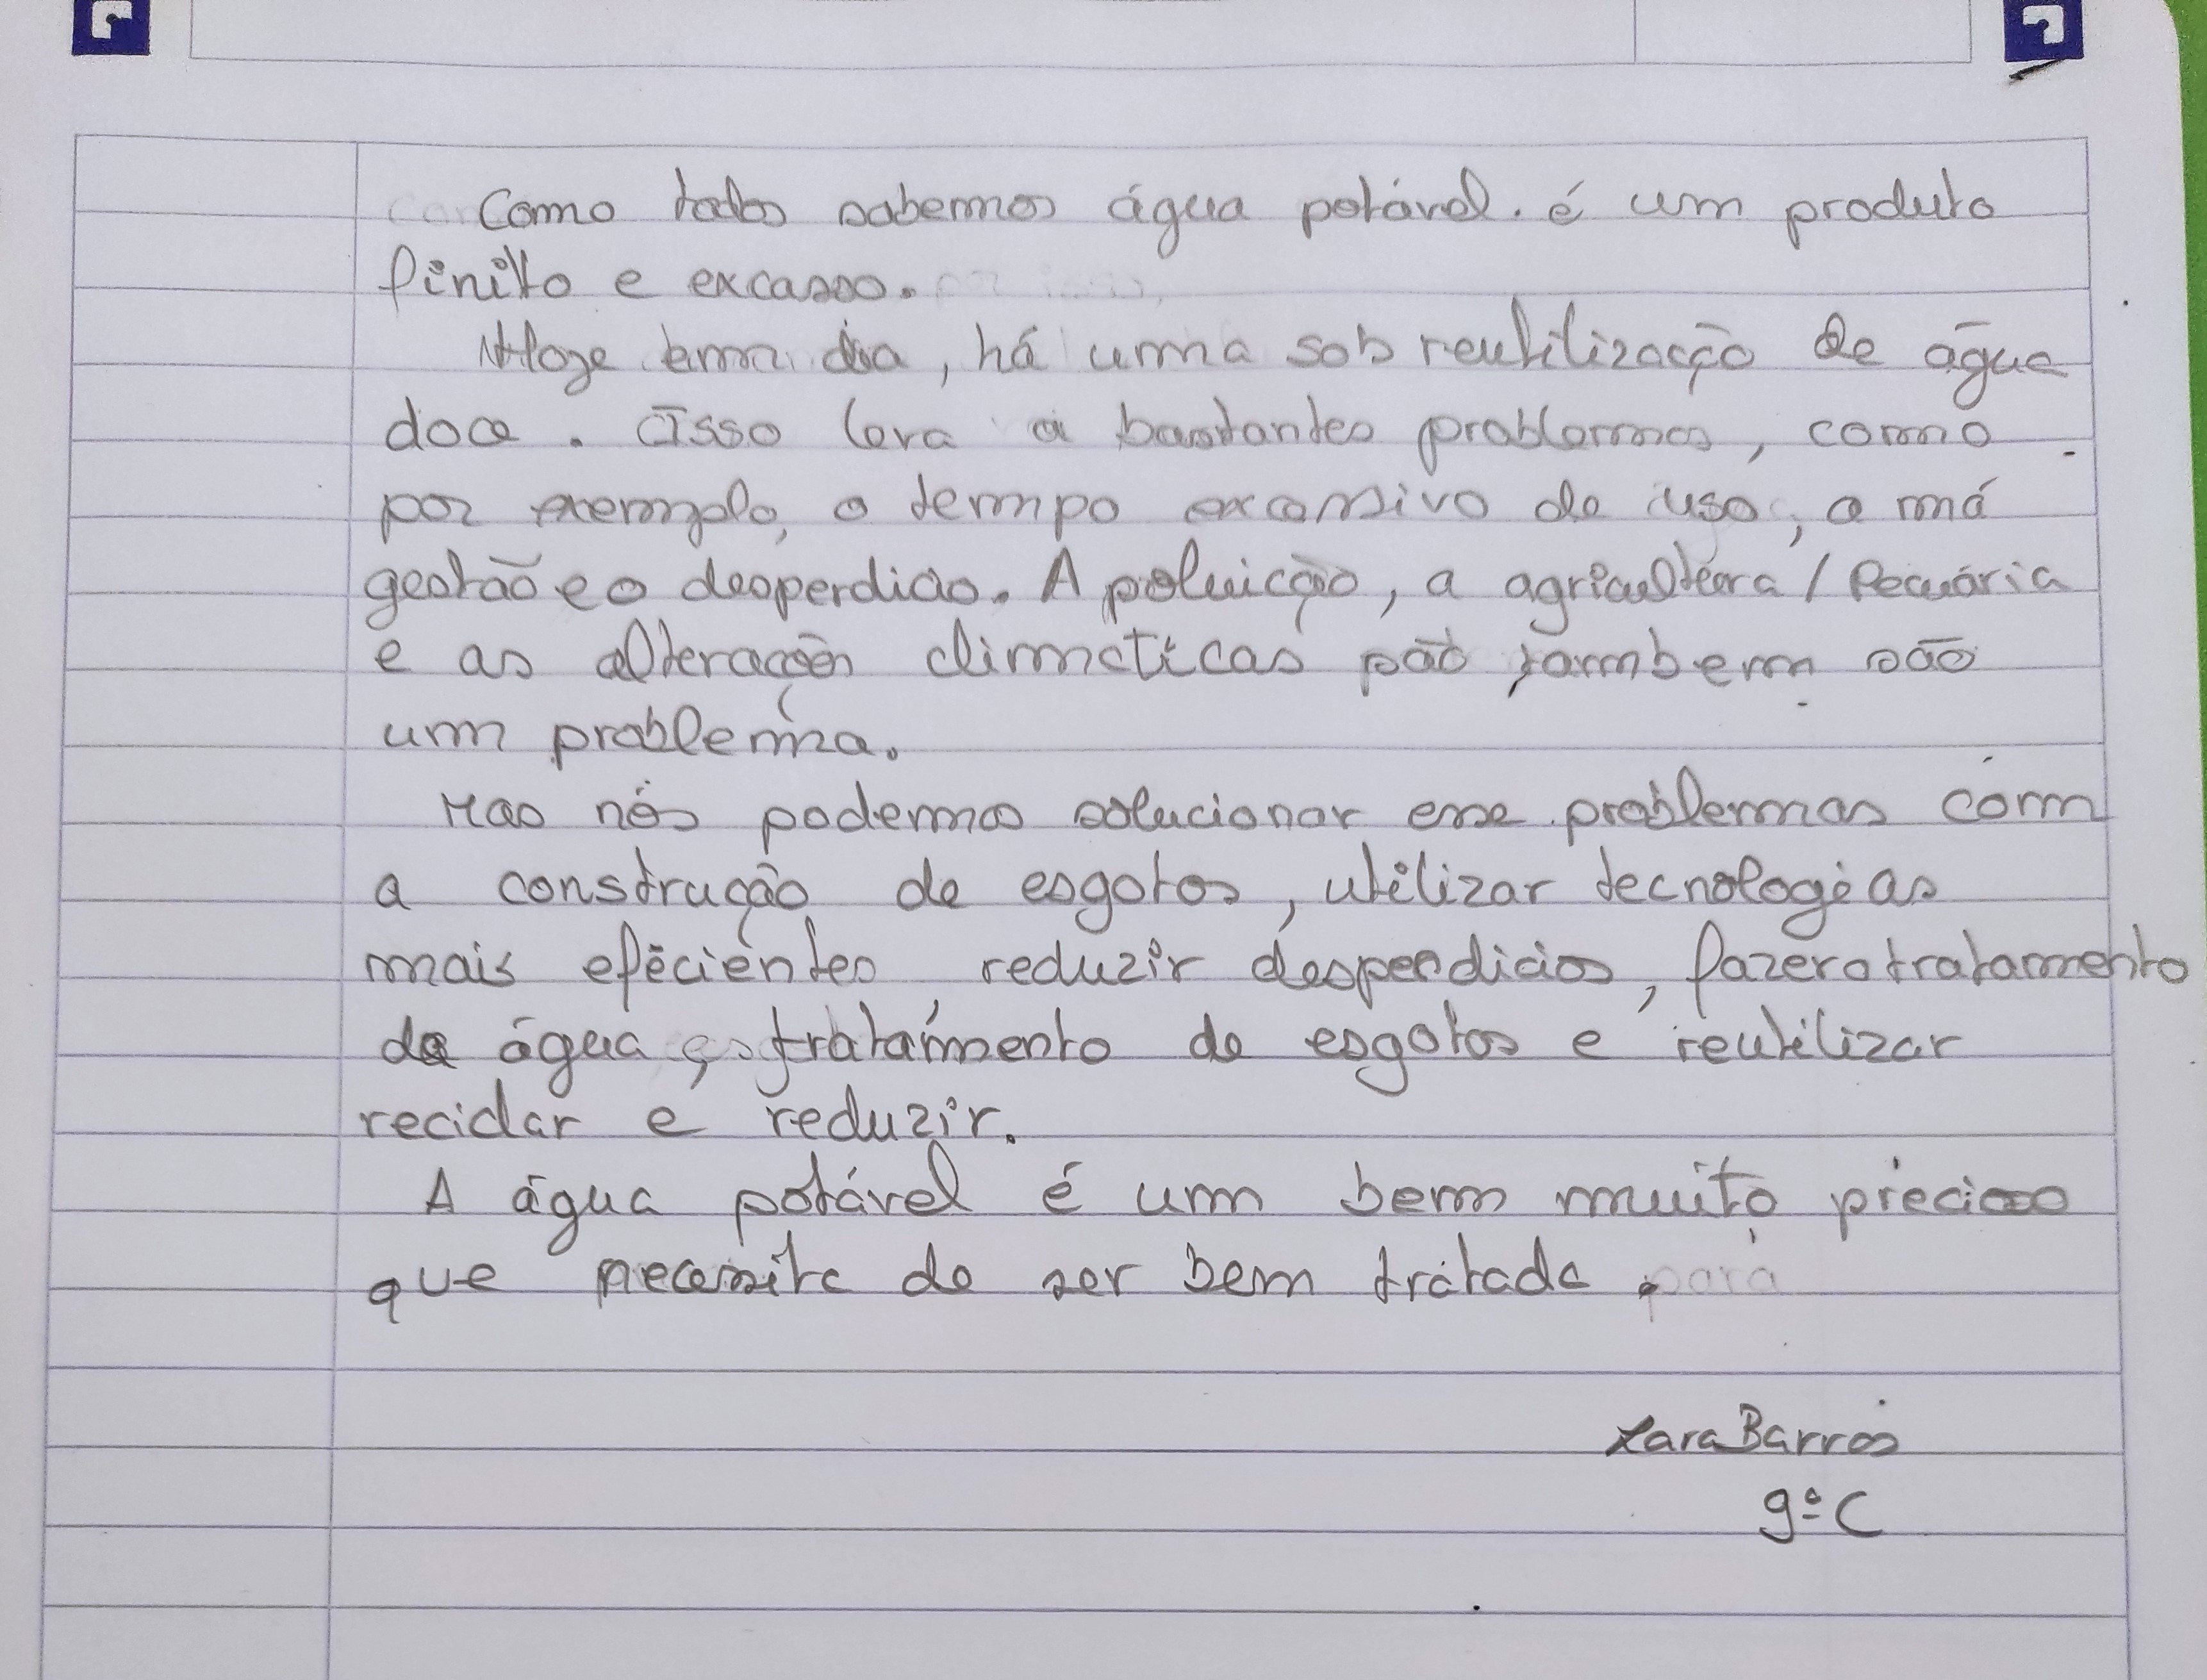 Como todos sabemos água potável. é um produto
finito e excasso.
Hoge em dia, há uma sobreutilização de água
doce. Isso leva a bastantes problemas, como
por exemplo, o tempo excessivo de uso, a má
gestão e o desperdicio. A poluição, a agricultura / Pecuária
e as alterações climáticas são tambem são
um problema.
Mas nós podemos solucionar esse problemas com
a construção de esgotos, utilizar tecnologias
mais eficientes, reduzir desperdicios, fazer o tratamento
da água, tratamento de esgotos e reutilizar
reciclar e reduzir.
A água potável é um bem muito precioso
que necessita de ser bem tratada.
Lara Barros
9º C